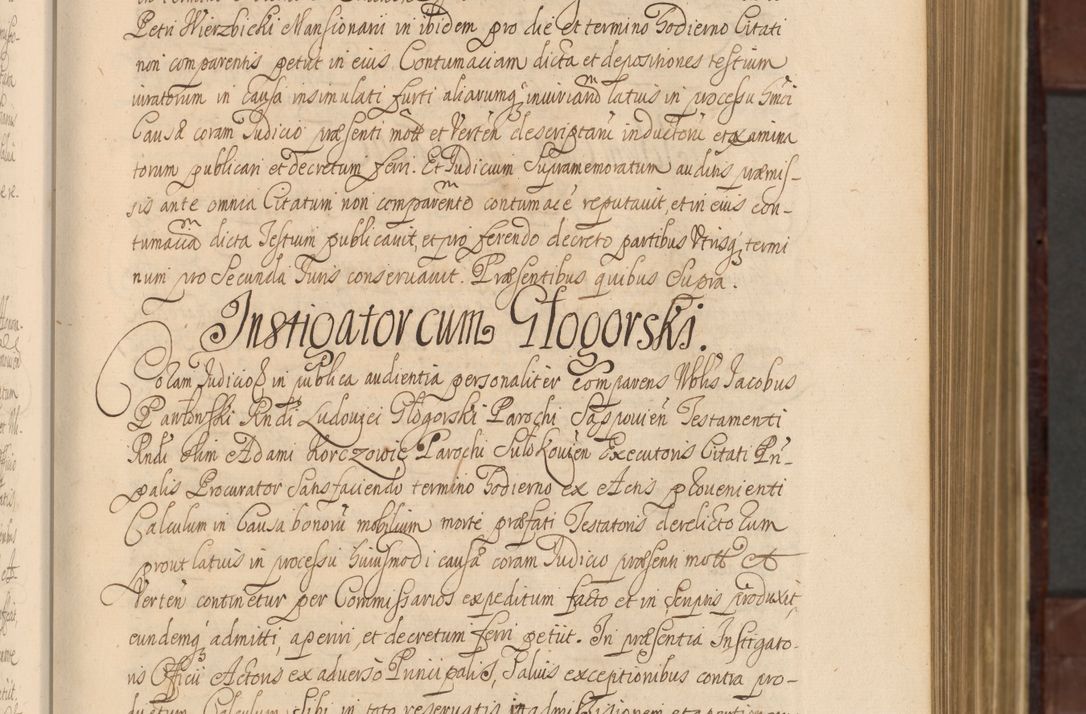 Petri Wierzbicki Mansionarii in ibidem pro die et termino hodierno Citati
non comparentis petiit in eius Contumaciam dicta et depositiones testium
iuratorum in Causa insimulati furti aliarumq iniuriarum latius in processu
Causæ coram Judicio præsenti mott et Verten descriptarum inductorum et examina
torum publicari et decretum ferri. Et Judicium Supramemoratum auditis præmis-
sis ante omnia Citatum non comparente contumacē reputavit, et in eius con-
tumacia dicta Testium publicavit, et pro ferendo decreto partibus Utrisq termi
num pro Secunda Juris conservavit. Præsentibus quibus Supra.
Instigator cum Głogorski.
Coram Judicio in publica audientia personaliter comparens Nblis Jacobus
Pawłowski Rndi Ludovici Głogorski Parochi Testamenti
Rndi olim Adami Korczowic Parochi Sułkovien Executoris Citati Prin-
palis Procurator Satisfaciendo termino hodierno ex Actis provenienti
Calculum in Causa bonorū mobilium morte præfati Testatoris derelictorum
prout latius in processu huiusmodi causæ coram Judicio præsenti mott et
Verten continetur per Commissarios expeditum facto et in scriptis produxit,
eundemq admitti, aperiri, et decretum ferri petiit. In præsentia Instigato-
ris Officii Actoris ex adverso Principalis, Salvis exceptionibus contra pro-
ductum Calculum sibi in toto reservatis in admissionem